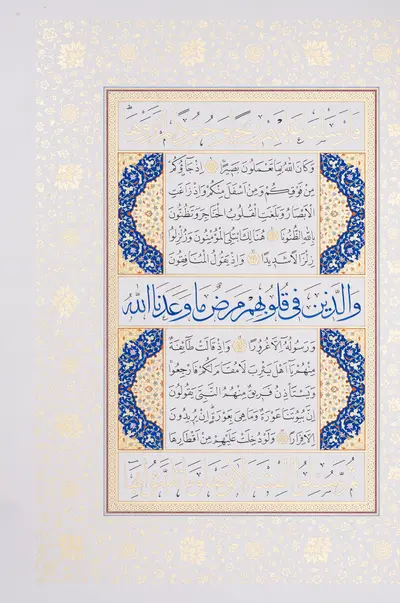 وَكَانَ اللهُ بِمَا تَعْمَلُونَ بَصِيرًا اِذْ جَاؤُكُمْ
مِنْ فَوْقِكُمْ وَمِنْ اَسْفَلَ مِنْكُمْ وَاِذْ زَاغَتِ
الْاَبْصَارُ وَبَلَغَتِ الْقُلُوبُ الْحَنَاجِرَ وَتَظُنُّونَ
بِاللهِ الظُّنُونَا هُنَالِكَ ابْتُلِيَ الْمُؤْمِنُونَ وَزُلْزِلُوا
زِلْزَالًا شَدِيدًا وَاِذْ يَقُولُ الْمُنَافِقُونَ
وَالَّذِينَ فِي قُلُوبِهِمْ مَرَضٌ مَا وَعَدَنَا اللهُ
وَرَسُولُهُ اِلَّا غُرُورًا وَاِذْ قَالَتْ طَائِفَةٌ
مِنْهُمْ يَا اَهْلَ يَثْرِبَ لَا مُقَامَ لَكُمْ فَارْجِعُوا
وَيَسْتَأْذِنُ فَرِيقٌ مِنْهُمُ النَّبِيَّ يَقُولُونَ
اِنَّ بُيُوتَنَا عَوْرَةٌ وَمَا هِيَ بِعَوْرَةٍ اِنْ يُرِيدُونَ
اِلَّا فِرَارًا وَلَوْ دُخِلَتْ عَلَيْهِمْ مِنْ اَقْطَارِهَا